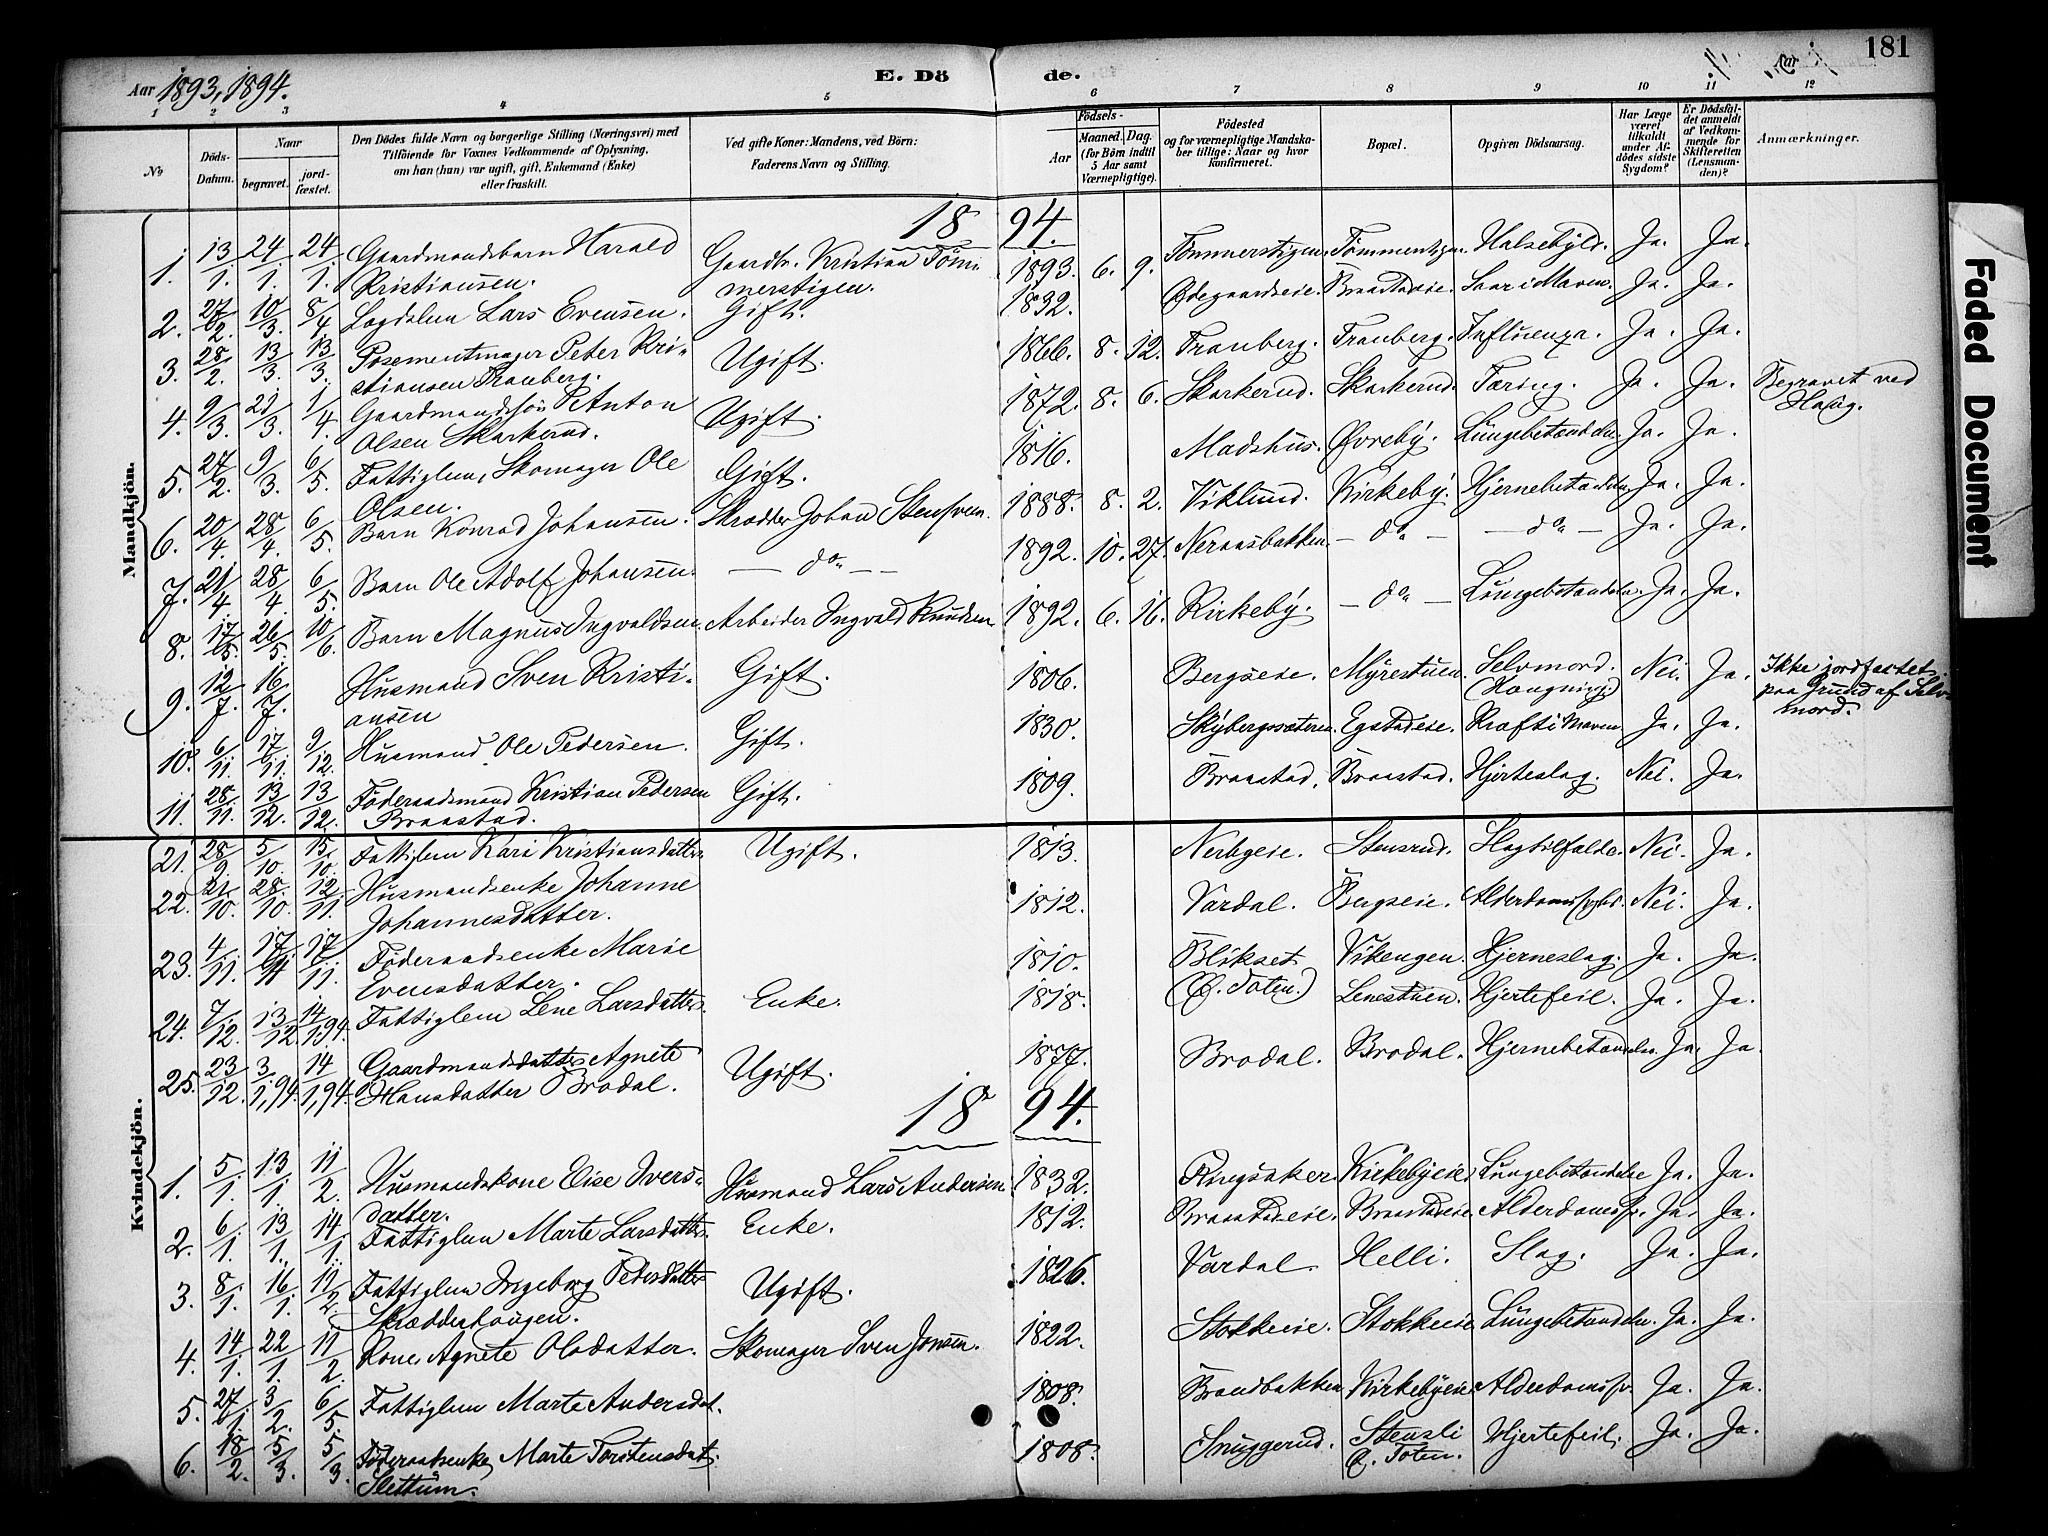 181
Aar 1893, 1894.
E. Döde.
Aar
1 2 3 4 5 6 7 8 9 10 11 12
No
Döds-Datum.
Naar
begravet.
jord-fæstet.
Den Dödes fulde Navn og borgerlige Stilling (Næringsvei) med
Tilföiende for Voxnes Vedkommende af Oplysning,
om han (hun) var ugift, gift, Enkemand (Enke)
eller fraskilt.
Ved gifte Koner: Mandens, ved Börn:
Faderens Navn og Stilling.
Födsels-
Aar
Maaned. Dag.
(for Börn indtil
5 Aar samt
Værnepligtige).
Födested
og for værnepligtige Mandska-
ber tillige: Naar og hvor
konfirmeret.
Bopæl.
Opgiven Dödsaarsag.
Har Læge
været
tilkaldt
under Af-
dödes sidste
Sygdom?
Er Dödsfal-
det anmeldt
af Vedkom-
mende for
Skifteretten
(Lensman-
den)?
Anmærkninger.
Mandkjön.
1894.
1. 13/1. 24/1. 24/1. Gaardmandsbarn Harald Kristiansen. Gaardbr. Kristian Tömmerstigen. 1893. 6. 9. Tömmerstigen. Tömmerstigen. Halsebyld. Ja. Ja.
2. 27/2. 10/3. 8/4. Logdslem Lars Evensen. Gift. 1832. Ödegaardseie. Braastadeie. Saar i Maven. Ja. Ja.
3. 28/2. 13/3. 13/3. Posementmager Peter Kristiansen Tranberg. Ugift. 1866. 8. 12. Tranberg. Tranberg. Influenza. Ja. Ja.
4. 9/3. 21/3. 1/4. Gaardmandssön P. Anton Olsen Skarkerud. Ugift. 1872. 8. 6. Skarkerud. Skarkerud. Tæring. Ja. Ja. Begravet ved Haug.
5. 27/2. 9/3. 6/5. Fattiglem, Skomager Ole Olsen. Gift. 1816. Madshus. Övreby. Lungebetændelse. Ja. Ja.
6. 20/4. 28/4. 6/5. Barn Konrad Johansen. Skrædder Johan Stensven. 1888. 8. 2. Viklund. Kirkeby. Hjernebetændelse. Ja. Ja.
7. 21/4. 28/4. 6/5. Barn Ole Adolf Johansen. — do — 1892. 10. 27. Neraasbakken. — do — — do — Ja. Ja.
8. 17/5. 26/5. 10/6. Barn Magnus Ingvaldsen. Arbeider Ingvald Knudsen 1892. 6. 16. Kirkeby. — do — Lungebetændelse. Ja. Ja.
9. 12/7. 16/7. Husmand Sven Kristiansen Gift. 1806. Bergseie. Myrestuen. Selvmord. (Hængning). Nei. Ja. Ikke jordfæstet paa Grund af Selvmord.
10. 6/11. 17/11. 9/12. Husmand Ole Pedersen. Gift. 1830. Skybergssæteren. Egstadeie. Kræft i Maven. Ja. Ja.
11. 28/11. 13/12. 13/12. Föderaadsmand Kristian Pedersen Braastad. Gift. 1809. Braastad. Braastad. Hjerteslag. Nei. Ja.
Kvindekjön.
21. 28/9. 5/10. 15/10. Fattiglem Kari Kristiansdatter. Ugift. 1813. Nerbyeie. Stensrud. Slagtilfælde. Nei. Ja.
22. 21/10. 28/10. 12/11. Husmandsenke Johanne Johannesdatter. 1812. Vardal. Bergseie. Alderdomssvgh. Nei. Ja.
23. 4/11. 17/11. 17/11. Föderaadsenke Marie Evensdatter. 1810. Blikset (Ö. Toten) Vikengen. Hjerneslag. Ja. Ja.
24. 7/12. 13/12. 14/1.94. Fattiglem Lene Larsdatter. Enke. 1818. Lenestuen. Hjertefeil. Ja. Ja.
25. 23/12. 3/1,94. 14/1,94. Gaardmandsdatter Agnete Hansdatter Brodal. Ugift. 1877. Brodal. Brodal. Hjernebetændelse. Ja. Ja.
1894.
1. 5/1. 13/1. 11/2. Husmandskone Elise Iversdatter. Husmand Lars Andersen. 1832. Ringsaker. Kirkebyeie. Lungebetændelse Ja. Ja.
2. 6/1. 13/1. 14/1. Fattiglem Marte Larsdatter. Enke. 1812. Braastadeie. Braastadeie. Alderdomssv. Ja. Ja.
3. 8/1. 16/1. 12/2. Fattiglem Ingeborg Pedersdatter Skrædderhaugen. Ugift. 1826. Vardal. Helli. Slag. Ja. Ja.
4. 14/1. 22/1. 11/2. Kone Agnete Olsdatter. Skomager Sven Jonsen. 1822. Stokkeie. Stokkeie Lungebetændelse. Ja. Ja.
5. 27/1. 3/2. 6/5. Fattiglem Marte Andersdat. 1808. Brandbakken Kirkebyeie Alderdomssv. Ja. Ja.
6. 18/2. 5/3. 5/3. Föderaadsenke Marte Torstensdat. Slettum. 1808. Snuggerud. Stensli Ö. Toten. Hjertefeil. Ja. Ja.
Faded Document